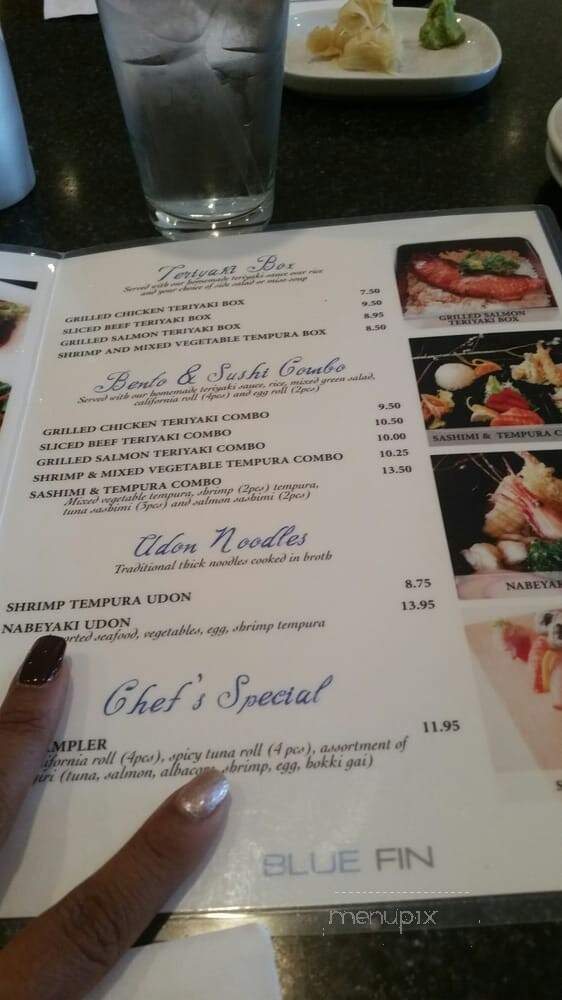 Teriyaki Box
Served with our homemade teriyaki sauce over rice
and your choice of side salad or miso soup
GRILLED CHICKEN TERIYAKI BOX 7.50
SLICED BEEF TERIYAKI BOX 9.50
GRILLED SALMON TERIYAKI BOX 8.95
SHRIMP AND MIXED VEGETABLE TEMPURA BOX 8.50
GRILLED SALMON
TERIYAKI BOX
Bento & Sushi Combo
Served with our homemade teriyaki sauce, rice, mixed green salad,
california roll (4pcs) and egg roll (2pcs)
GRILLED CHICKEN TERIYAKI COMBO 9.50
SLICED BEEF TERIYAKI COMBO 10.50
GRILLED SALMON TERIYAKI COMBO 10.00
SHRIMP & MIXED VEGETABLE TEMPURA COMBO 10.25
SASHIMI & TEMPURA COMBO 13.50
Mixed vegetable tempura, shrimp (2pcs) tempura,
tuna sashimi (3pcs) and salmon sashimi (2pcs)
SASHIMI & TEMPURA C
Udon Noodles
Traditional thick noodles cooked in broth
SHRIMP TEMPURA UDON 8.75
NABEYAKI UDON 13.95
orted seafood, vegetables, egg, shrimp tempura
NABEYA
Chef's Special
AMPLER 11.95
ifornia roll (4pcs), spicy tuna roll (4 pcs), assortment of
giri (tuna, salmon, albacore, shrimp, egg, hokki gai)
S
BLUE FIN
menupix